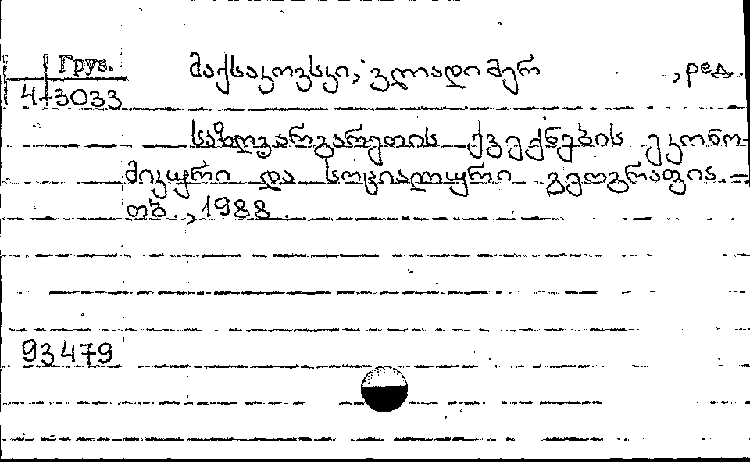 Груз. მაქსაკოვსკი, ვლადიმერ , ред.
4-3033
საზღვარგარეთის ქვეყნების ეკონო-
მიკური და სოციალური გეოგრაფია. –
თბ., 1988
93479